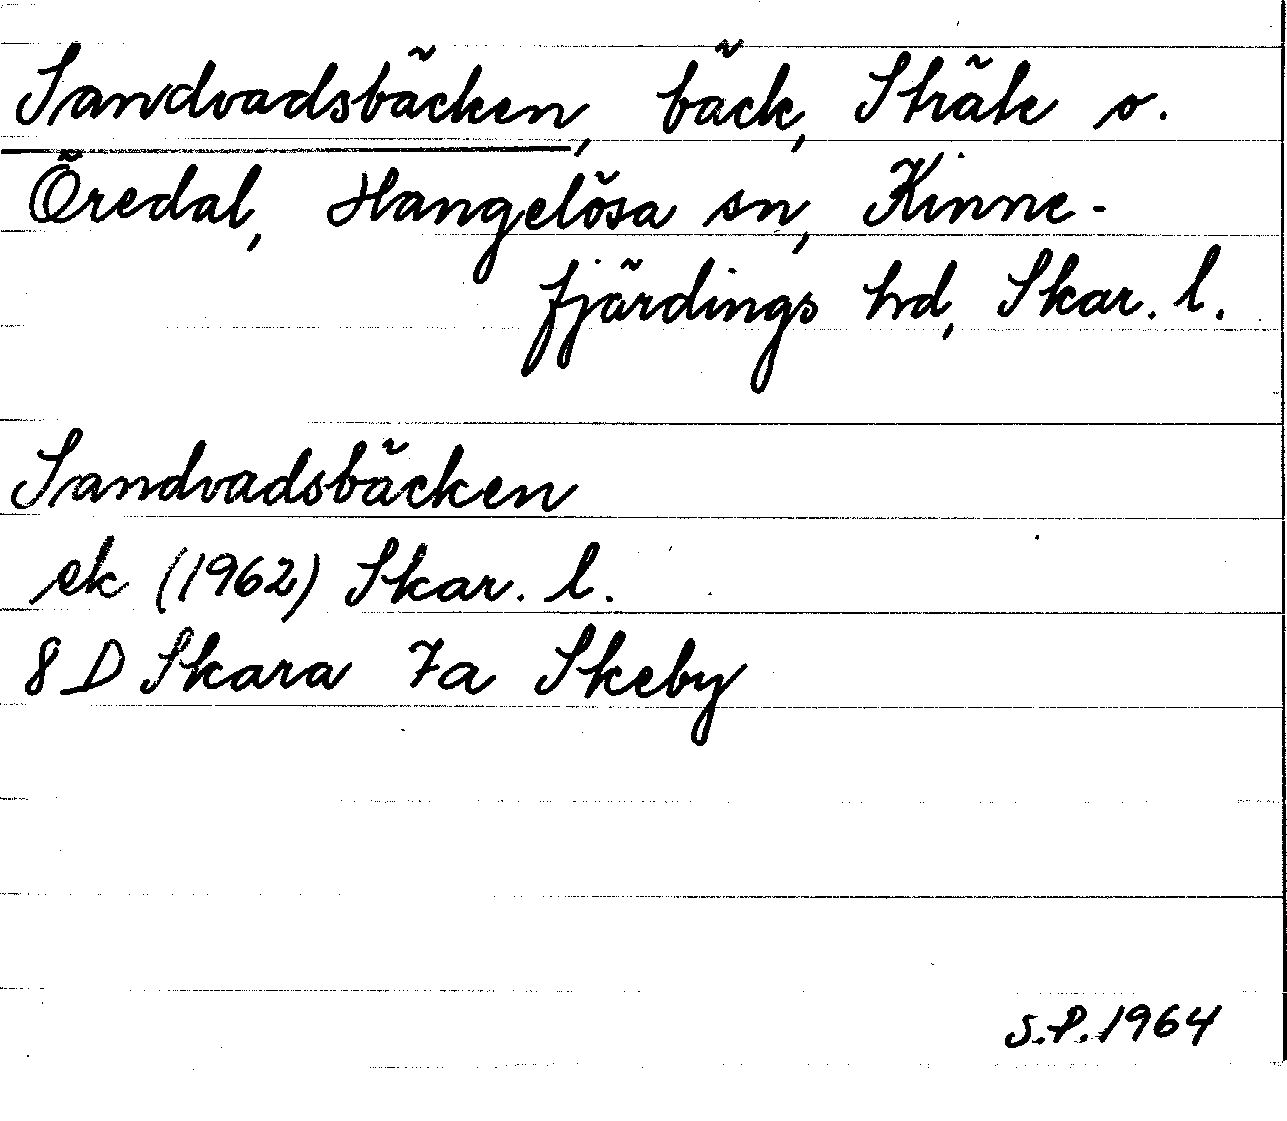 Sandvadsbäcken, bäck, Sträte o.
Öredal, Hangelösa sn, Kinne-
fjärdings hd, Skar. l.
Sandvadsbäcken
ek (1962) Skar. l.
8 D Skara 7a Skeby
S.P. 1964